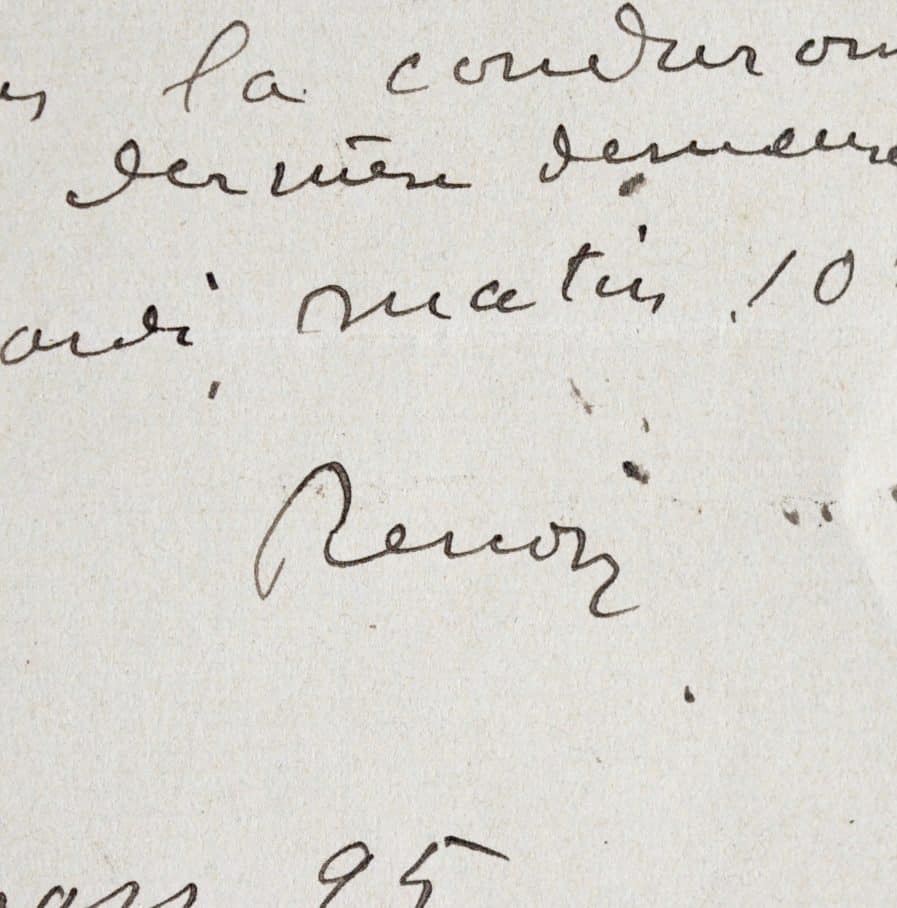 la conduirons
dernière demeure
mardi matin 10
Renoir
mars 95